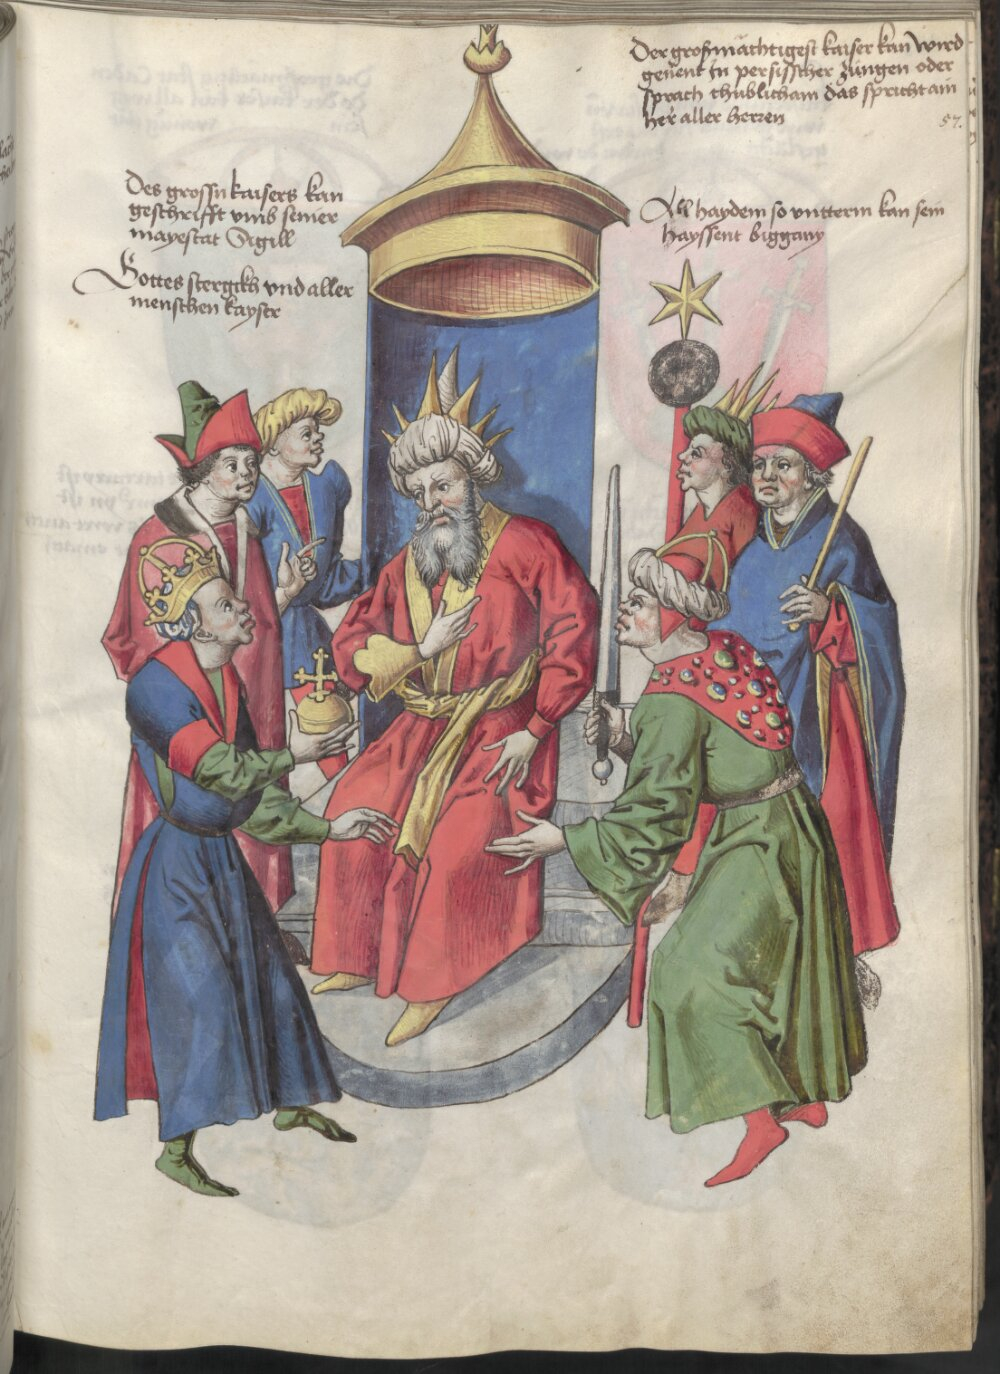 Der großmächtigest kaiser kan wird
genent in persischer zungen oder
sprach thüblicham das spricht ain
her aller herren
57.
Des grossn kaisers kan
geschrifft vmb seiner
mayestat Sigill
Gottes stergckh vnd aller
menschen kayser
All haydem so vntterm kan sein
hayssent biggany